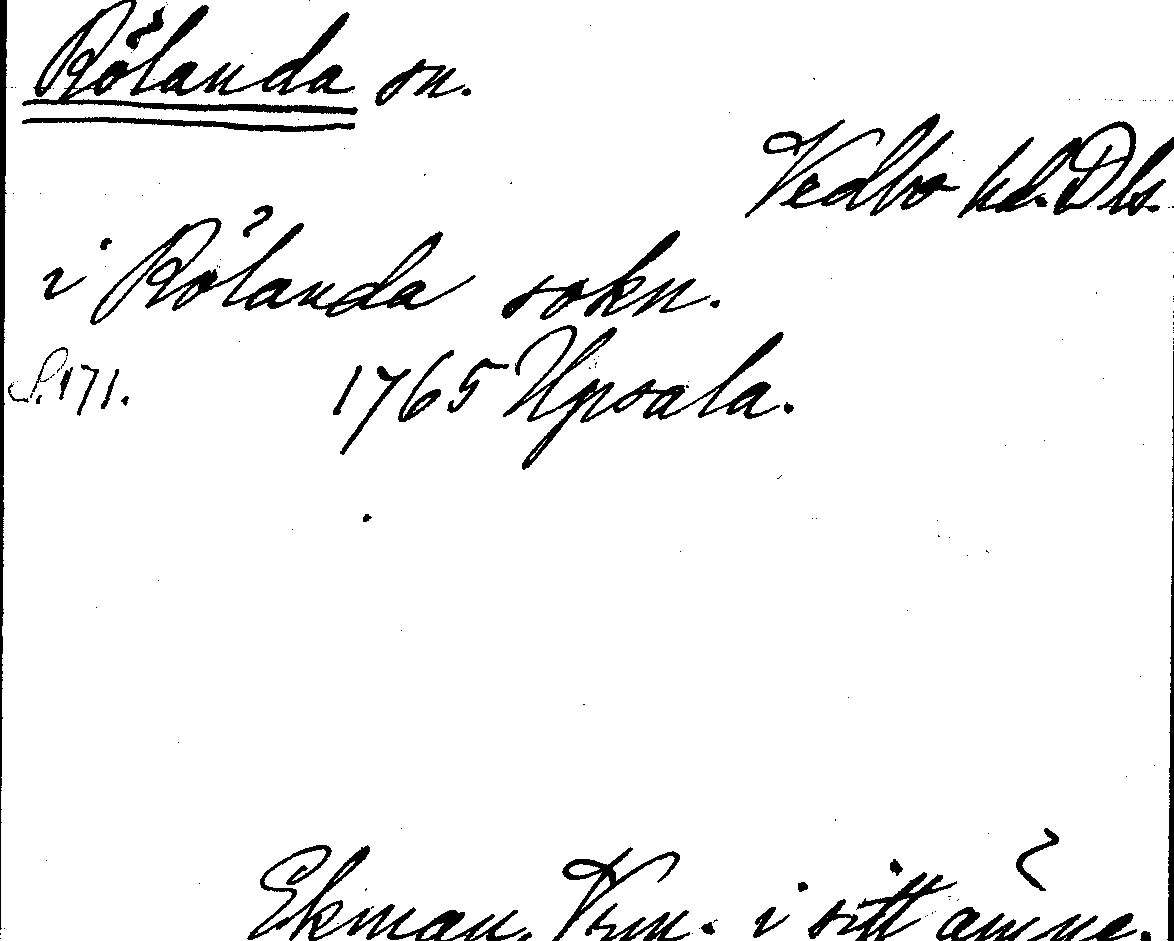 Rölanda sn.
Vedbo hd. Dls.
i Rölanda sokn.
S. 171. 1765 Upsala.
Ekman, Vrm. i sitt ämne.